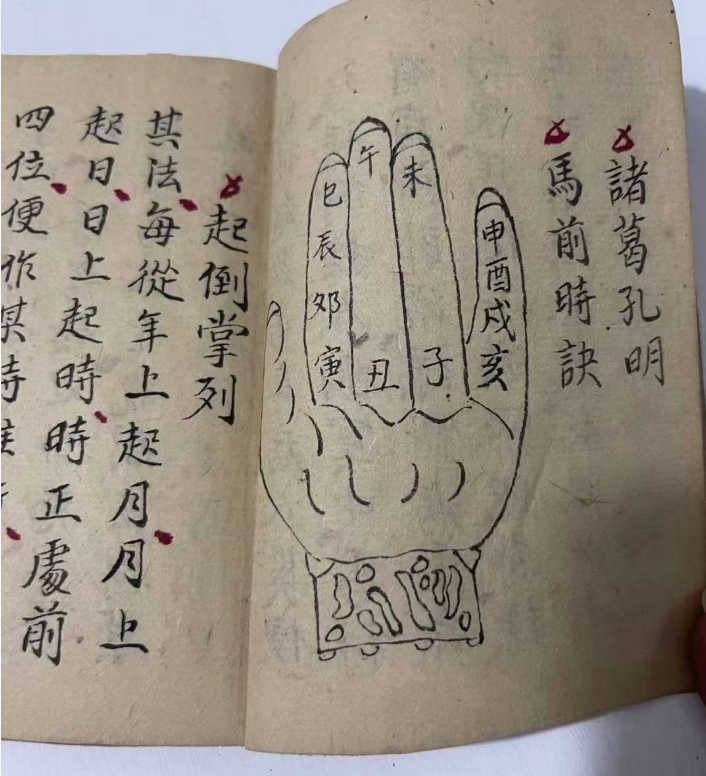 諸葛孔明
馬前時訣
申酉戌亥
未
子
午
丑
巳辰卯寅
起倒掌列
其法每從年上起月月上
起日日上起時時正處前
四位便作某時